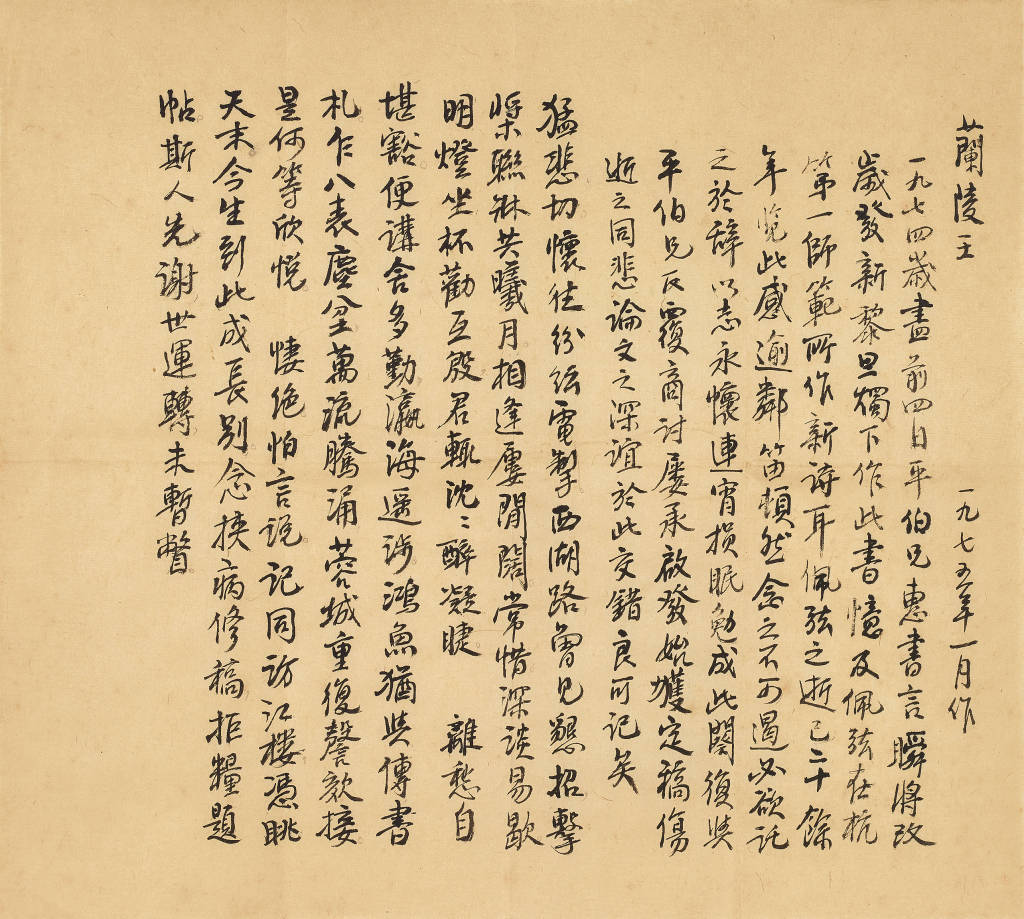 蘭陵王 一九七五年一月作
一九七四歲盡前四日平伯兄惠書言瞬將改
歲發新黎旦燭下作此書憶及佩弦在杭
第一師範所作新詩耳佩弦之逝已二十餘
年覽此感逾鄰笛頓然念之不可遏必欲託
之於辭以志永懷連宵損眠勉成此闋復與
平伯兄反覆商討屢承啟發始獲定稿傷
逝之同悲論文之深誼於此交錯良可記矣
猛悲切懷往紛紜電掣西湖路曾見懇招擊
槳聯牀共曦月相逢屢閒闊常惜深談易歇
明燈坐杯勸互殷君輒沈沈醉凝睫 離愁自
堪豁便講舍多勤瀛海遥涉鴻魚猶與傳書
札乍八表塵坌萬流騰涌蓉城重復謦欬接
是何等欣悅 悽絶怕言說記同訪江樓憑眺
天末今生到此成長別念挾病修稿拒糧題
帖斯人先謝世運轉未暫瞥